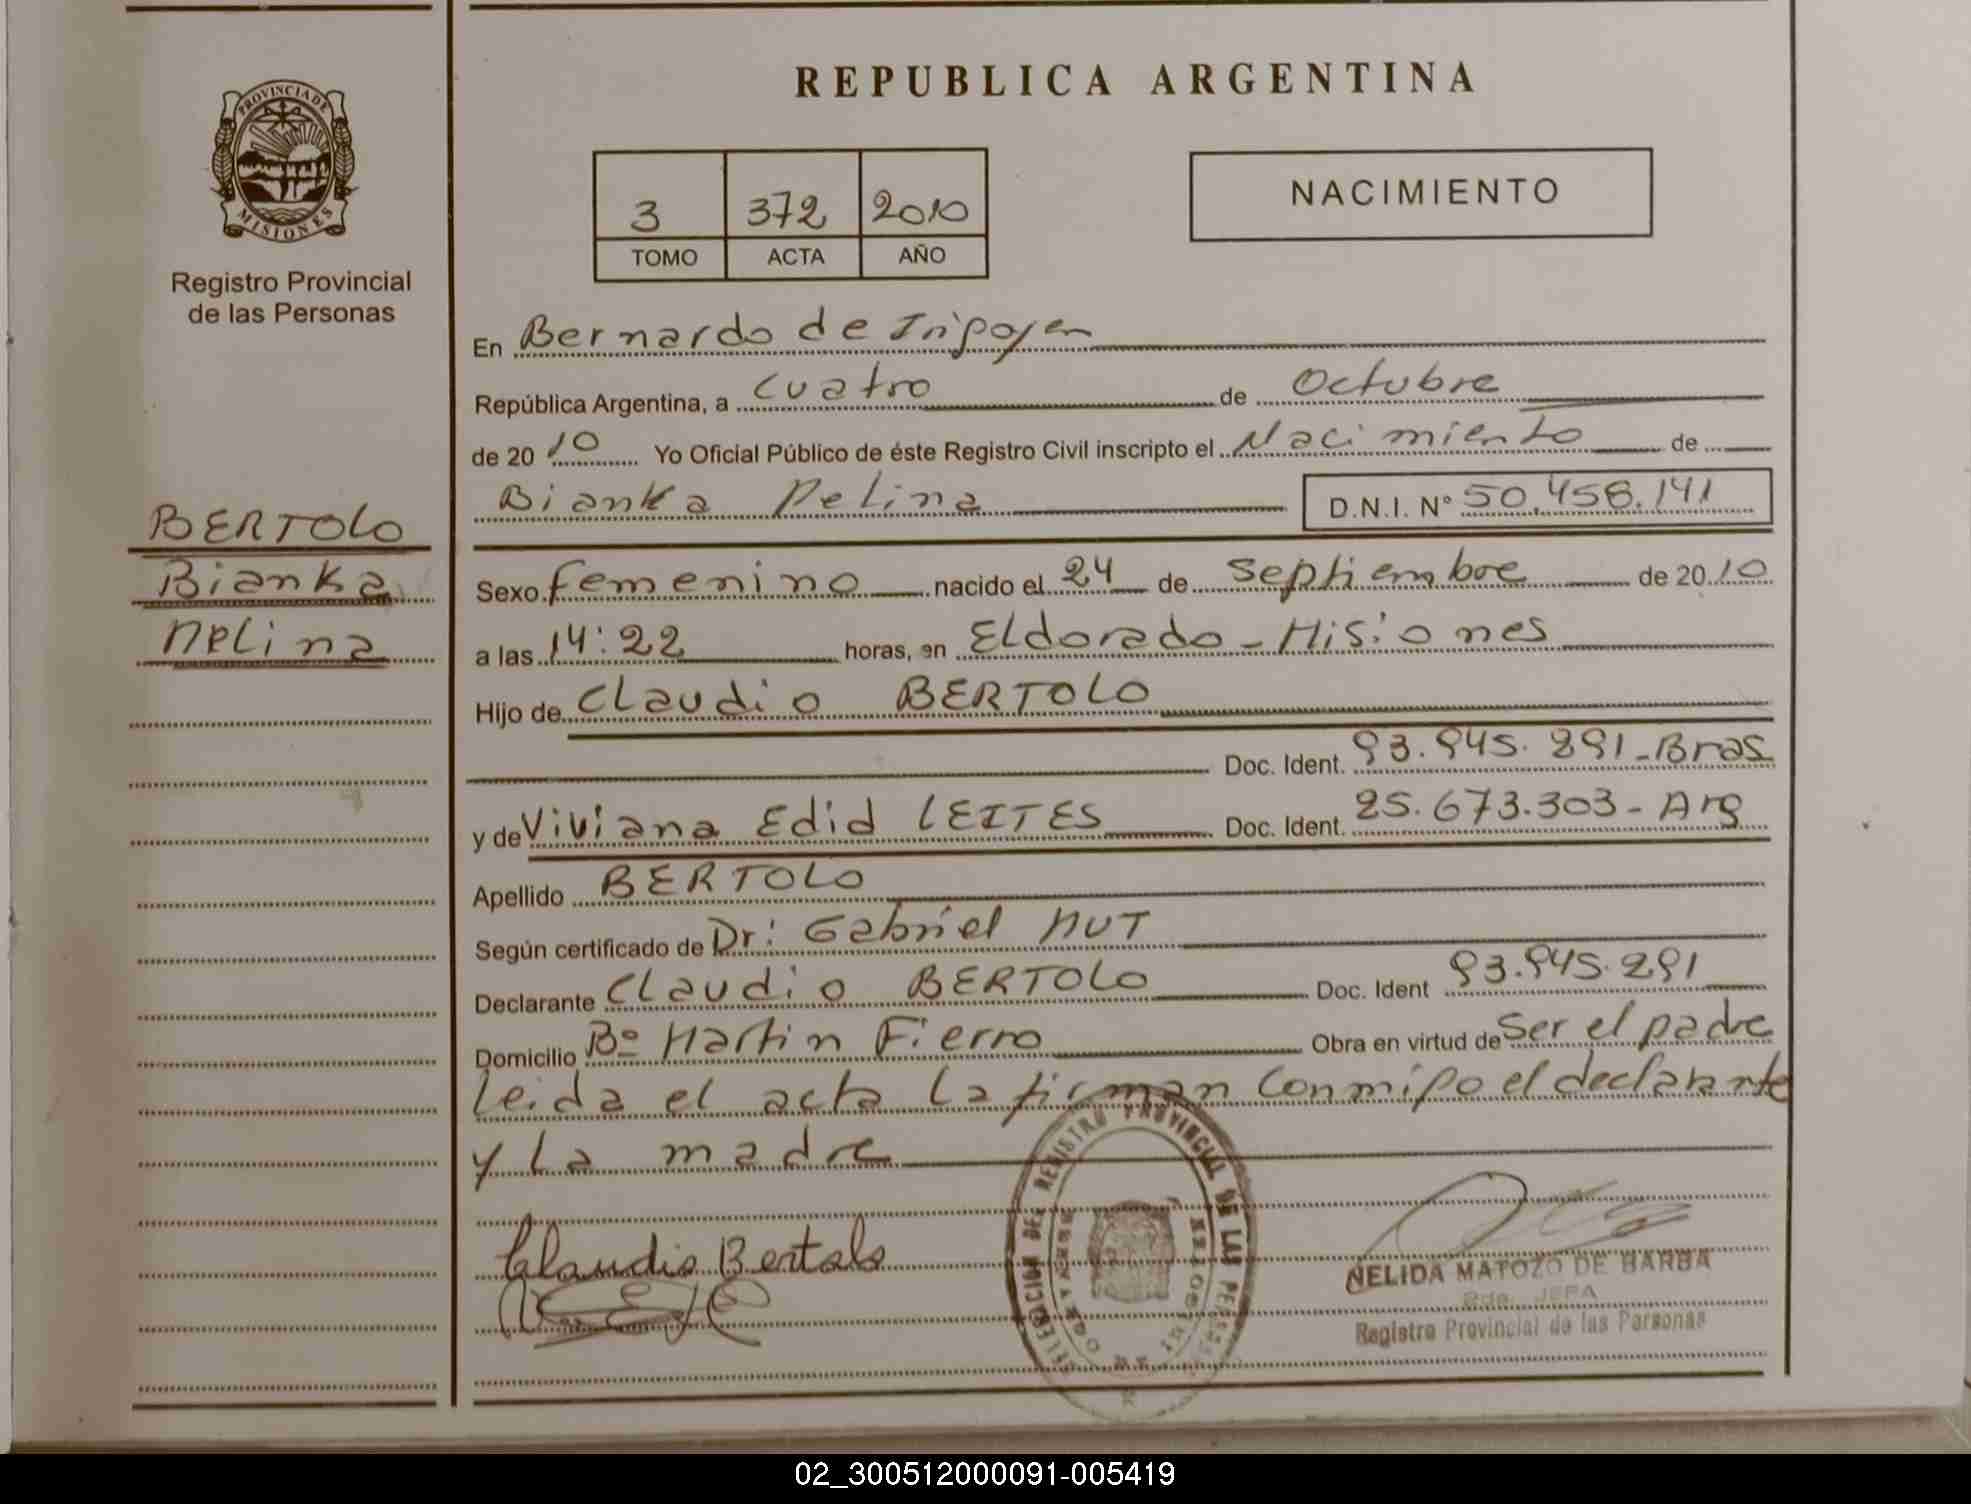 REPUBLICA ARGENTINA
PROVINCIA DE
MISIONES
Registro Provincial
de las Personas
3 372 2010
TOMO ACTA AÑO
NACIMIENTO
En Bernardo de Irigoyen
República Argentina, a cuatro de Octubre
de 2010 Yo Oficial Público de éste Registro Civil inscripto el Nacimiento de
Bianka Melina D.N.I. Nº 50.458.141
BERTOLO
Bianka
Melina
Sexo femenino nacido el 24 de septiembre de 2010
a las 14:22 horas, en Eldorado - Misiones
Hijo de Claudio BERTOLO
Doc. Ident. 93.945.291 - Bras
y de Viviana Edid LEITES Doc. Ident. 25.673.303 - Arg
Apellido BERTOLO
Según certificado de Dr: Gabriel
Declarante Claudio BERTOLO Doc. Ident 93.945.291
Domicilio Bº Martin Fierro Obra en virtud de Ser el padre
Leida el acta la firman conmigo el declarante
y la madre
Claudio Bertolo
DELEGACION DEL REGISTRO PROVINCIAL DE LAS PERSONAS
NELIDA MATOZO DE BARBA
2da. JEFA
Registro Provincial de las Personas
02_300512000091-005419